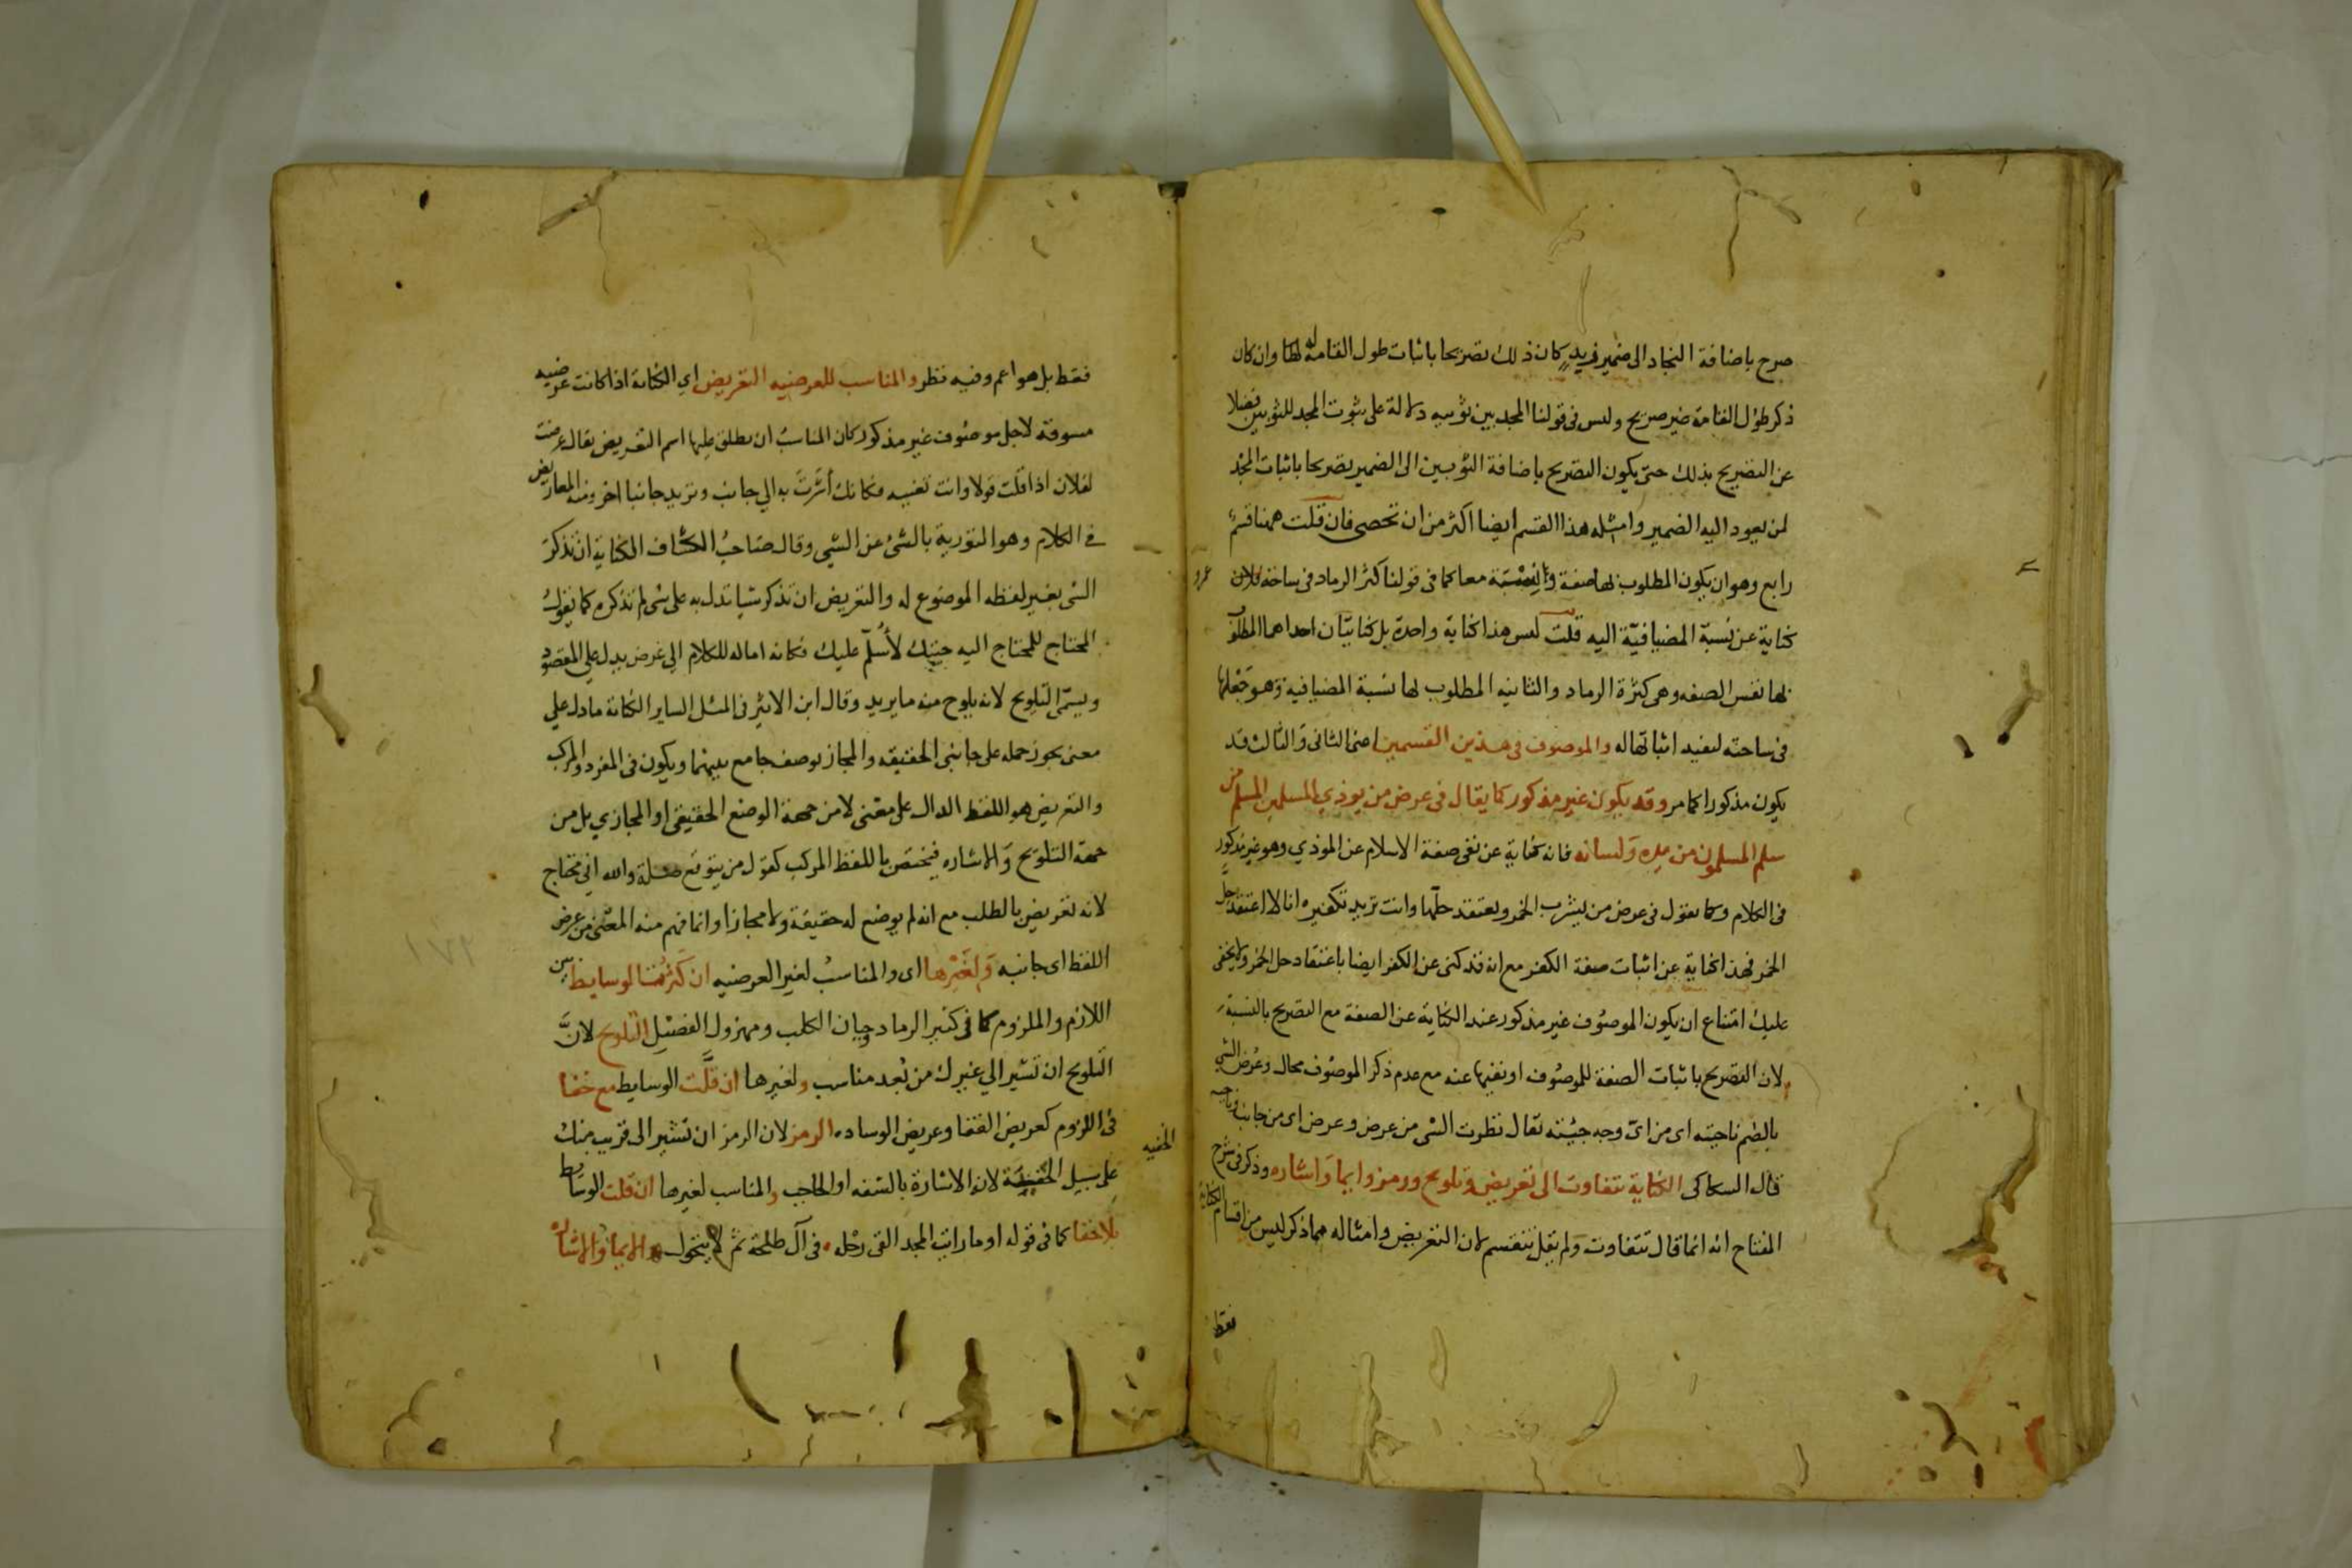 صرح باضافة النجاد الى ضمير فريد كان ذلك تصريحا باثبات طول القامة له لطا وان كان
ذكر طول القامة غير صريح وليس فى قولنا المجد بين ثوبيه دلالة على ثبوت المجد للثوبين فضلا
عن التصريح بذلك حتى يكون التصريح باضافة الثوبين الى الضمير تصريحا باثبات المجد
لمن يعود اليه الضمير وامثله هذا القسم ايضا اكثر من ان تحصى فان قلت ههنا قسم
رابع وهو ان يكون المطلوب بها صفة والنسبة معا كما فى قولنا كثر الرماد فى ساحة فلان
عمرو
كناية عن نسبة المضيافيّة اليه قلت ليس هذا كناية واحدة بل كنايتان احداهما المطلوب
بها نفس الصفه وهى كثرة الرماد والثانيه المطلوب لها نسبة المضيافية وهو جعلها
فى ساحته ليفيد اثباتها له والموصوف فى هذين القسمين اعنى الثانى والثالث قد
يكون مذكورا كما مر وقد يكون غير مذكور كما يقال فى عرض من يوذي المسلمين المسلم من
سلم المسلمون من يده ولسانه فانه كناية عن نفى صفة الاسلام عن الموذي وهو غير مذكور
فى الكلام وكما يقول فى عرض من يشرب الخمر ويعتقد حلّها وانت تريد تكفيره انا لا اعتقد حلّ
الخمر فهذا كناية عن اثبات صفة الكفر مع انه قد كنى عن الكفر ايضا باعتقاد حل الخمر ولا يخفى
عليك امتناع ان يكون الموصوف غير مذكور عند الكناية عن الصفة مع التصريح بالنسبة
لان التصريح باثبات الصفة للموصوف او نفيها عنه مع عدم ذكر الموصوف محال وعرض الشي
بالضم ناحيته اى من اىّ وجه جيئته يقال نظرت الشى من عرض وعرض اى من جانب وناحيه
قال السكاكى الكناية تتفاوت الى تعريض وتلويح ورمز وايما واشاره وذكر فى شرح
المفتاح انه انما قال تتفاوت ولم يقل تنقسم لان التعريض وامثاله مما ذكر ليس من اقسام الكناية
فقط
فقط بل هو اعم وفيه نظر والمناسب للعرضيه التعريض اي الكناية اذا كانت عرضيه
مسوقة لاجل موصوف غير مذكور كان المناسب ان يطلق عليها اسم التعريض يقال عرضت
لفلان اذا قلت قولا وانت تعنيه فكانك أشرت به الي جانب وتريد جانبا اخر ومنه المعاريض
في الكلام وهو التورية بالشئ عن الشي وقال صاحب الكشاف الكناية ان تذكر
الشى بغير لفظه الموضوع له والتعريض ان تذكر شيا تدل به على شى لم تذكره كما يقول
المحتاج للمحتاج اليه جيتك لأسلّم عليك فكانه اماله للكلام الى عرض يدل على المقصود
ويسمّى التلويح لانه يلوح منه ما يريد وقال ابن الاثير فى المثل الساير الكناية ما دل علي
معنى يجوز حمله على جانبى الحقيقه والمجاز بوصف جامع بينهما ويكون فى المفرد والمركب
والتعريض هو اللفظ الدال على معنى لا من جهة الوضع الحقيقى او المجازي بل من
جهة التلويح والاشاره فيختص باللفظ المركب كقول من يتوقع صلة والله اني محتاج
لانه تعريض بالطلب مع انه لم يوضع له حقيقة ولا مجازا وانما فهم منه المعنى من عرض
اللفظ اى جانبه ولغيرها اى والمناسب لغير العرضيه ان كثرت الوسايط بين
اللازم والملزوم كما فى كثير الرماد وجبان الكلب ومهزول الفصيل التلويح لانّ
التلويح ان تشير الي غيرك من بعد مناسب ولغيرها ان قلّت الوسايط مع خفا
فى اللزوم كعريض القفا وعريض الوساده الرمز لان الرمز ان تشير الى قريب منك
الخفيه
على سبيل الخفية لان الاشارة بالشفه او الحاجب والمناسب لغيرها ان قلت الوسايط
بلا خفا كما فى قوله او ما رايت المجد القى رحله فى آل طلحة ثم لم يتحول الايما والاشاره